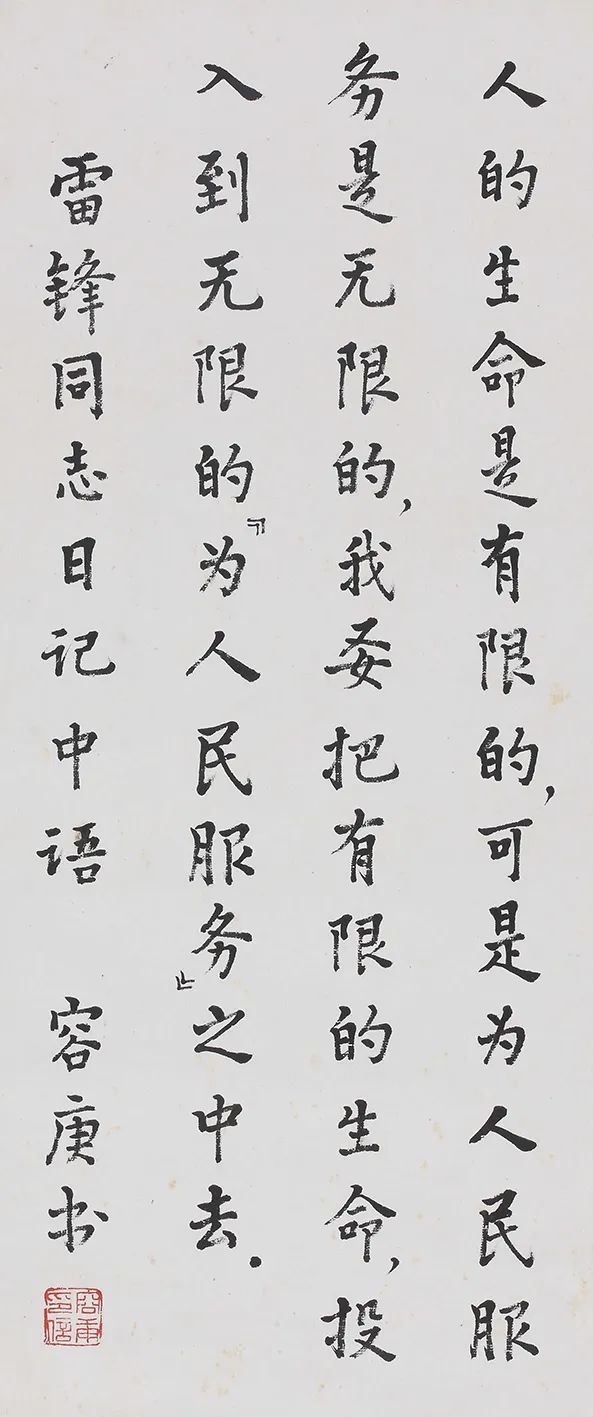 人的生命是有限的，可是为人民服
务是无限的，我要把有限的生命，投
入到无限的『为人民服务』之中去.
雷锋同志日记中语 容庚书
容庚印信